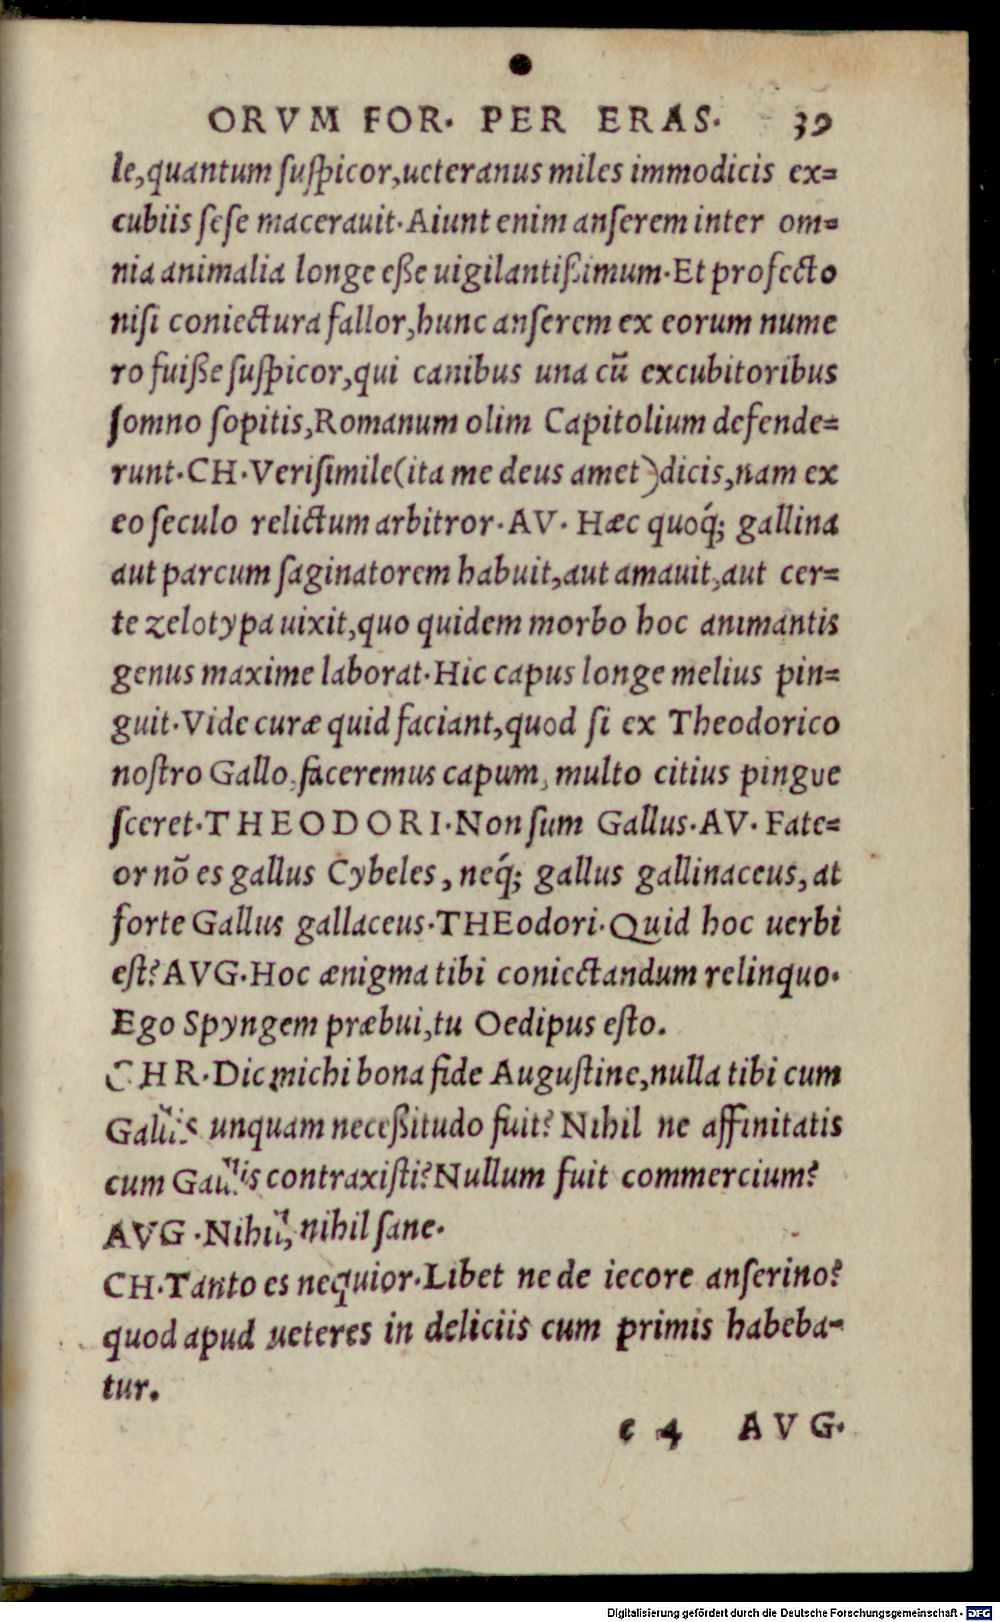 ORVM FOR. PER ERAS. 39
le,quantum ſuſpicor,ueteranus miles immodicis ex=
cubiis ſeſe macerauit.Aiunt enim anſerem inter om=
nia animalia longe eſſe uigilantißimum.Et profecto
niſi coniectura fallor,hunc anſerem ex eorum nume
ro fuiſſe ſuſpicor,qui canibus una cũ excubitoribus
ſomno ſopitis,Romanum olim Capitolium defende=
runt.CH.Veriſimile(ita me deus amet)dicis,nam ex
eo ſeculo relictum arbitror.AV. Hæc quoq́; gallina
aut parcum ſaginatorem habuit,aut amauit,aut cer=
te zelotypa uixit,quo quidem morbo hoc animantis
genus maxime laborat.Hic capus longe melius pin=
guit.Vide curæ quid faciant,quod ſi ex Theodorico
noſtro Gallo,faceremus capum, multo citius pingue
ſceret.THEODORI.Non ſum Gallus.AV. Fate=
or nõ es gallus Cybeles, neq́; gallus gallinaceus,at
forte Gallus gallaceus.THEodori.Quid hoc uerbi
eſt?AVG.Hoc ænigma tibi coniectandum relinquo.
Ego Spyngem præbui,tu Oedipus eſto.
CHR.Dic michi bona fide Auguſtine,nulla tibi cum
Gallis unquam neceßitudo fuit? Nihil ne affinitatis
cum Gallis contraxiſti?Nullum fuit commercium?
AVG.Nihil, nihil ſane.
CH.Tanto es nequior.Libet ne de iecore anſerino?
quod apud ueteres in deliciis cum primis habeba-
tur.
e 4 AVG.
Digitalisierung gefördert durch die Deutsche Forschungsgemeinschaft - DFG